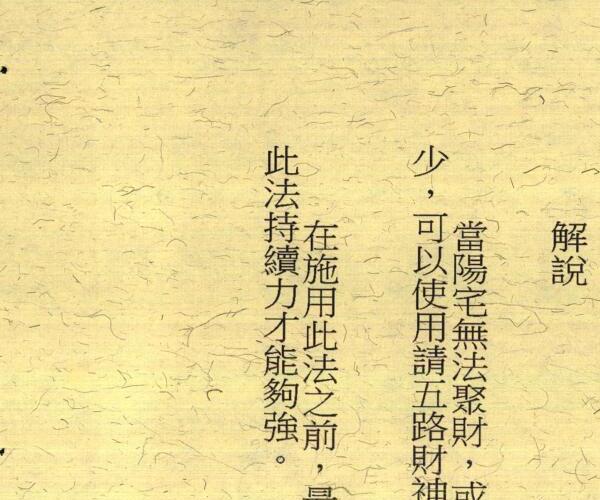 解說
當陽宅無法聚財，或
少，可以使用請五路財神
在施用此法之前，最
此法持續力才能夠強。